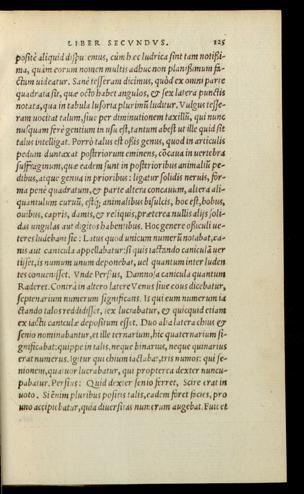 LIBER SECVNDVS. 125
positè aliquid disputemus, cùm hæc ludrica sint tam notißi-
ma, quàm eorum nomen multis adhuc non planißimum fa-
ctum uideatur. Sanè tesseram dicimus, quòd ex omni parte
quadrata sit, quæ octo habet angulos, & sex latera punctis
notata, qua in tabula lusoria plurimū luditur. Vulgus tesse-
ram uocitat talum, siue per diminutionem taxillū, qui nunc
nusquam ferè gentium in usu est, tantum abest ut ille quid sit
talus intelligat. Porrò talus est oßis genus, quod in articulis
pedum duntaxat posteriorum eminens, cōcaua in uertebra
suffraginum, quæ eadem sunt in posterioribus animaliū pe-
dibus, atque genua in prioribus: ligatur solidis neruis, for-
ma penè quadratum, & parte altera concauum, altera ali-
quantulum curuū, estq; animalibus bisulcis, hoc est, bobus,
ouibus, capris, damis, & reliquis, præterea nullis alijs soli-
das ungulas aut digitos habentibus. Hoc genere oßiculi ue-
teres ludebant sic: Latus quod unicum numerū notabat, ca-
nis aut canicula appellabatur: si quis iactando caniculā uer
tisset, is numum unum deponebat, uel quantum inter luden
tes conuenisset. Vnde Persius, Damnosa canicula quantum
Raderet. Contrà in altero latere Venus siue cous dicebatur,
septenarium numerum significans. Is qui eum numerum ia
ctando talos reddidisset, sex lucrabatur, & quicquid etiam
ex iactu caniculæ depositum esset. Duo alia latera chius &
senio nominabantur, et ille ternarium, hic quaternarium si-
gnificabat: quippe in talis neque binarius, neque quinarius
erat numerus. Igitur qui chium iactabat, tris numos: qui se-
nionem, quatuor lucrabatur, qui propterea dexter nuncu-
pabatur. Persius: Quid dexter senio ferret, Scire erat in
uoto. Si enim pluribus positis talis, eadem foret facies, pro
uno accipiebatur, quia diuersitas numerum augebat. Fuit et